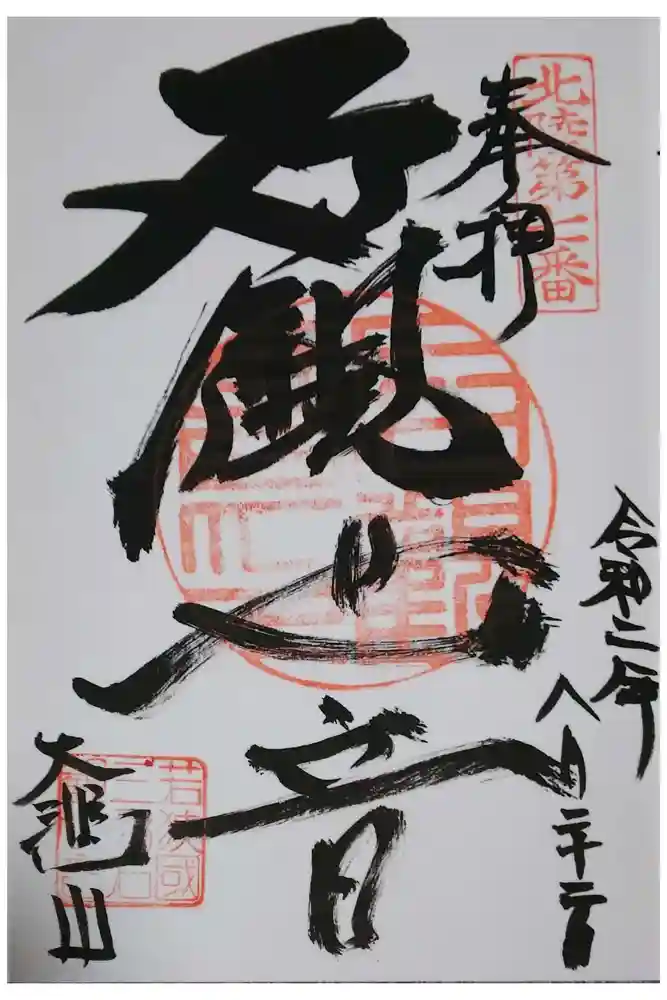 北陸第二番
奉拝
石観世音
令和二年
八月二十二日
大悲山
若狭國